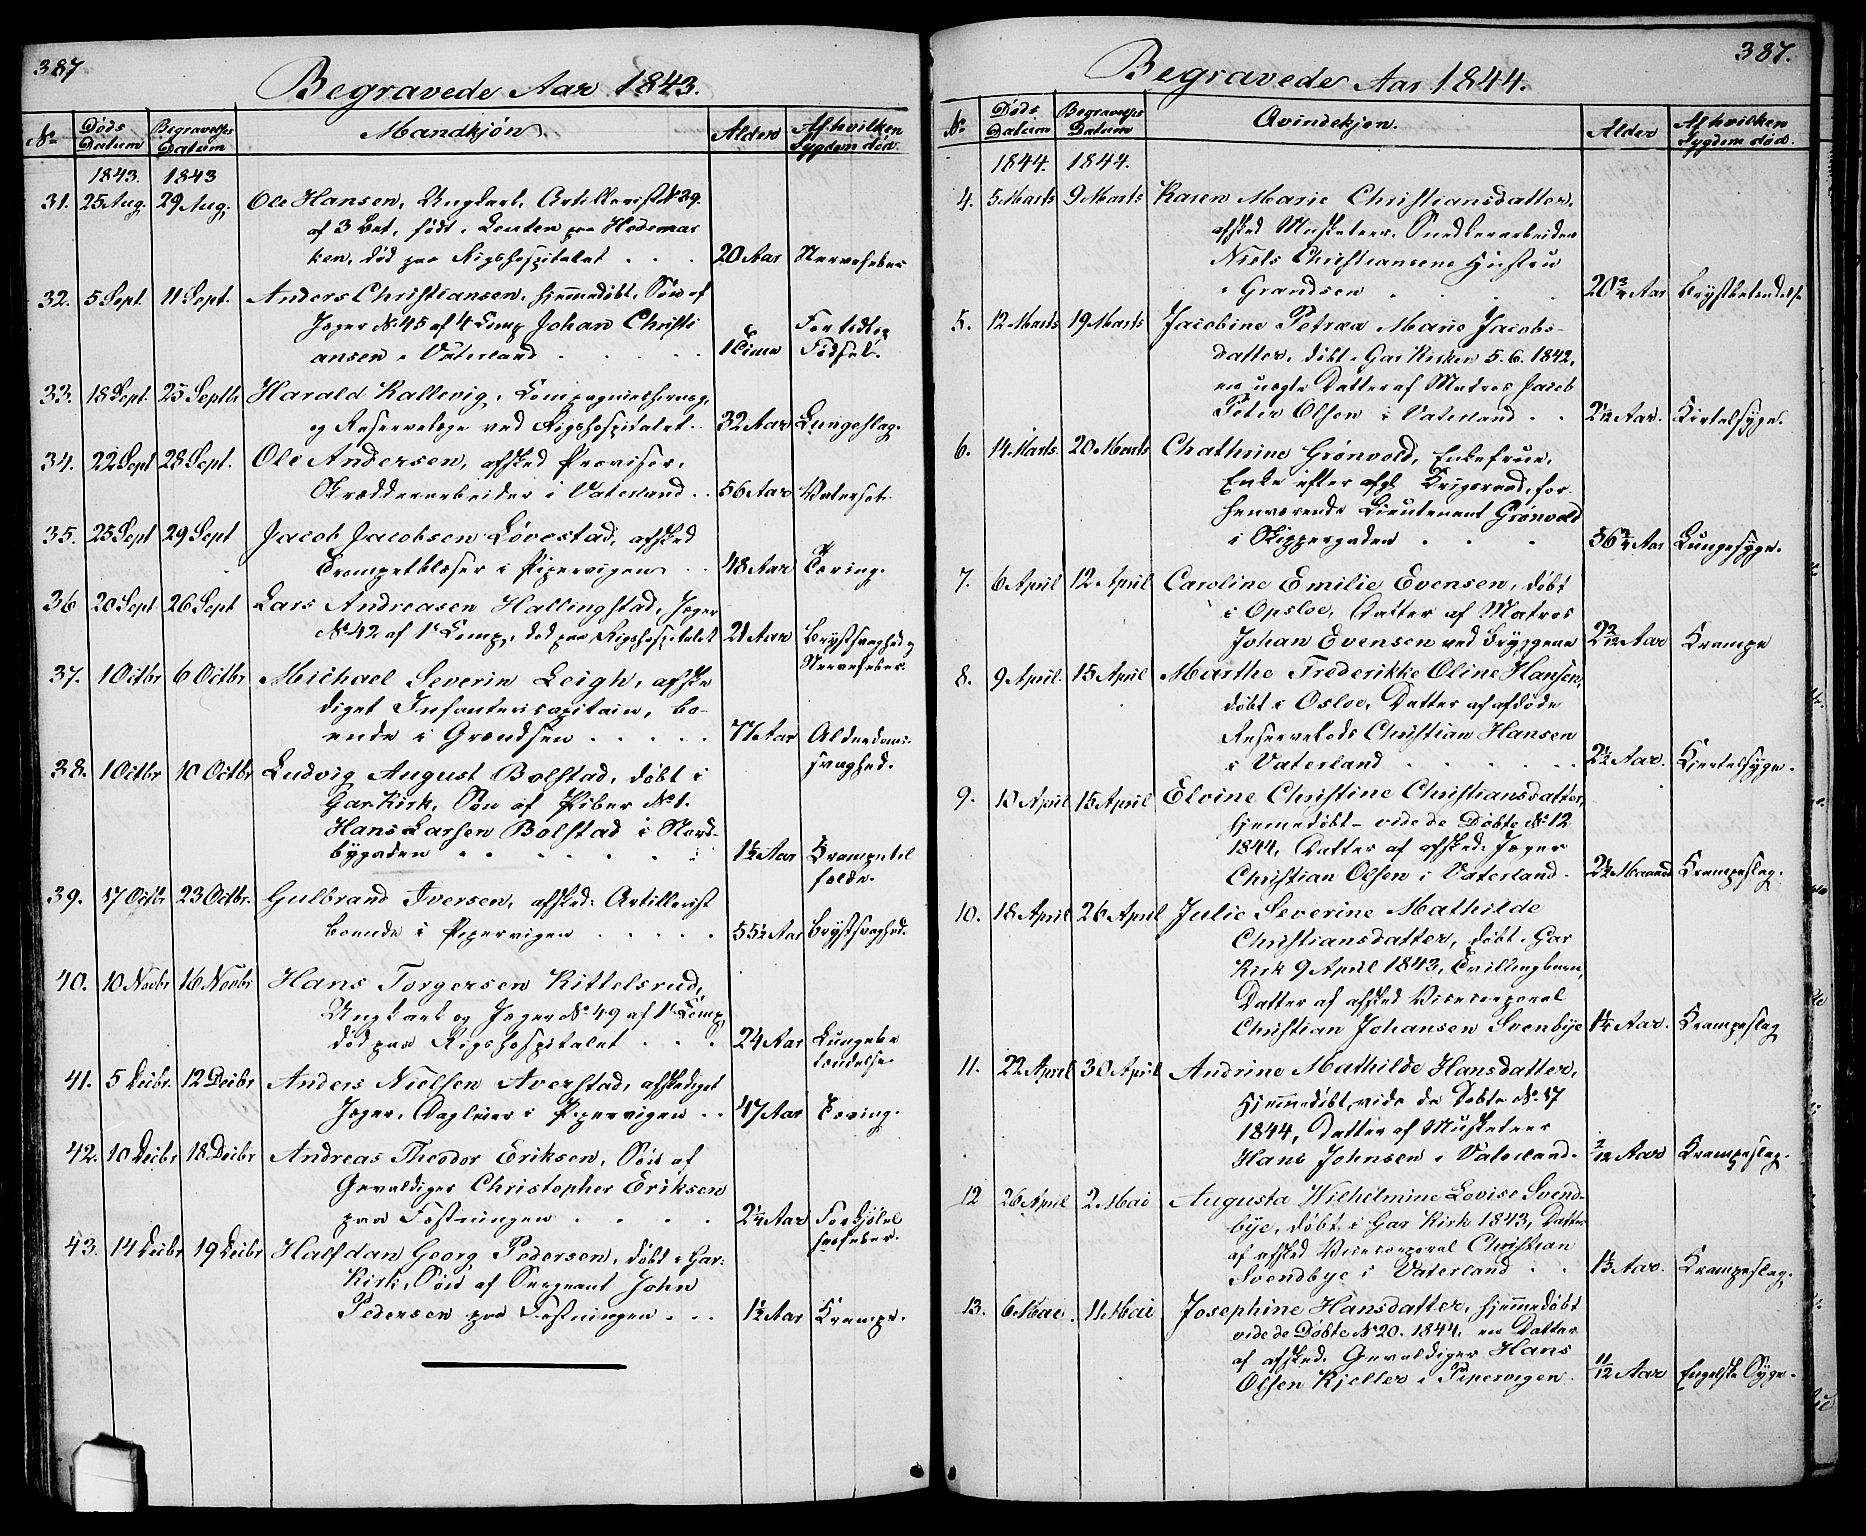 387
Begravede Aar 1843.
No
Døds Datum
Begravelses Datum
Mandkjøn.
Alder
Af hvilken Sygdom død.
1843. 1843
31. 25 Aug. 29 Aug. Ole Hansen, Ungkarl, Artillerist No 39.
af 3 Bat, født i Leuten paa Hedemar
ken, død paa Rigshospitalet . . . 20 Aar Nervefeber
32. 5 Sept. 11 Sept. Anders Christiansen, hjemmedøbt, Søn af
Jæger No 45 af 4 Comp Johan Christi
ansen i Vaterland . . . . . 1 Time For tidlig Fødsel.
33. 18 Sept. 25 Septbr Harald Kallevig, Compagniechirurg,
og Reservelæge ved Rigshospitalet . . 32 Aar Lungeslag.
34. 22 Sept 28 Sept. Ole Andersen, afsked
Skrædderarbeider i Vaterland . . 56 Aar Vatersot.
35. 25 Sept 29 Sept Jacob Jacobsen Løvestad, afsked
Trompetblæser i Pipervigen . . 48 Aar Tæring.
36 20 Sept 26 Sept Lars Andreasen Hallingstad, Jæger
No 42 af 1e Comp, død paa Rigshospitalet 21 Aar Brystsvaghed og
Nervefeber.
37. 1 Octbr 6 Octbr Michael Severin Leigh, afske
diget Infantericapitain, bo-
ende i Grændsen . . . . . 77 Aar Alderdoms-
svaghed.
38. 1 Octbr 10 Octbr Ludvig August Bolstad, døbt i
Gar Kirk, Søn af Piber No 1.
Hans Larsen Bolstad i Nord-
bygaden . . . . . 1½ Aar Krampetil
fælde.
39. 17 Octbr 23 Octbr. Gulbrand Iversen, afsked: Artillerist
boende i Pipervigen . . . . . 55½ Aar Brystsvaghed.
40. 10 Novbr 16 Novbr Hans Torgersen Kittelsrud,
Ungkarl og Jæger No 49 af 1e Comp,
død paa Rigshospitalet . . . 24 Aar Lungebe
tændelse.
41. 5 Decbr. 12 Decbr Anders Nielsen Averstad, afskediget
Jæger, Dagleier i Pipervigen . . 47 Aar Tæring.
42. 10 Decbr 18 Decbr Andreas Theodor Eriksen, Søn af
Gevaldiger Christopher Eriksen
paa Fæstningen . . . . 2¼ Aar Forkjølel
sesfeber.
43. 14 Decbr 19 Decbr Halfdan Georg Pedersen, døbt i Gar:
Kirk, Søn af Sergeant John
Pedersen paa Fæstningen . . . 1½ Aar Krampe.
387.
Begravede Aar 1844.
No
Døds Datum
Begravelses Datum
Qvindekjøn.
Alder
Af hvilken Sygdom død.
1844. 1844.
4. 5 Marts 9 Marts Karen Marie Christiansdatter,
afsked Musketeer, Snedkerarbeider
Niels Christiansens Hustru
i Grændsen . . . . 20¾ Aar Brystbetændelse
5. 12 Marts 19 Marts Jacobine Petrea Marie Jacobs-
datter, døbt i Gar Kirken 5.6.1842,
en uægte Datter af Matros Jacob
Peter Olsen i Vaterland . . Aar. Kirtelsyge.
6. 14 Marts. 20 Marts Chathrine Grønvold, Enkefrue,
Enke efter afg. Krigsraad, for-
henværende Lieutenant Grønvold
i Skippergaden . . . . 56¾ Aar Lungesyge.
7. 6 April 12 April Caroline Emilie Evensen, døbt
i Opsloe, Datter af Matros
Johan Evensen ved Bryggene Aar Krampe
8. 9 April. 15 April Marthe Frederikke Oline Hansen,
døbt i Osloe, Datter af afdøde
Christian Hansen
i Vaterland . . . . . . 2½ Aar. Kjertelsyge.
9. 10 April 15 April Elvine Christine Christiansdatter,
hjemedøbt - vide de Døbte No 12
1844, Datter af afsked: Jæger
Christian Olsen i Vaterland. 2½ Maaned Krampeslag.
10. 18 April 26 April Julie Severine Mathilde
Christiansdatter, døbt i Gar
Kirk 9 April 1843, Tvillingbarn,
Datter af afsked Vicecorporal
Christian Johansen Svenbye 1¼ Aar. Krampeslag
11. 22 April 30 April Andrine Mathilde Hansdatter,
hjemmedøbt vide de Døbte No. 17
1844, Datter af Musketeer
Hans Johnsen i Vaterland. 2/12 Aar Krampeslag.
12 26 April 2 Mai Augusta Wilhelmine Lovise Svend-
bye, døbt i Gar Kirk 1843, Datter
af afsked Vicecorporal Christian
Svendbye i Vaterland . . Aar. Krampeslag.
13. 6 Mai . 11 Mai Josephine Hansdatter, hjemmedøbt
vide de Døbte No 20. 1844, en Datter
af afsked. Gevaldiger Hans
Olsen Kjeller i Pipervigen. 11/12 Aar Engelsk Syge.